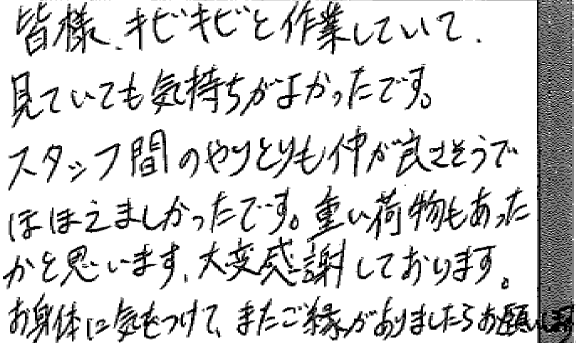 皆様、キビキビと作業していて、
見ていても気持ちがよかったです。
スタッフ間のやりとりも仲が良さそうで
ほほえましかったです。重い荷物もあった
かと思います、大変感謝しております。
お身体に気をつけて、またご縁がありましたらお願いします